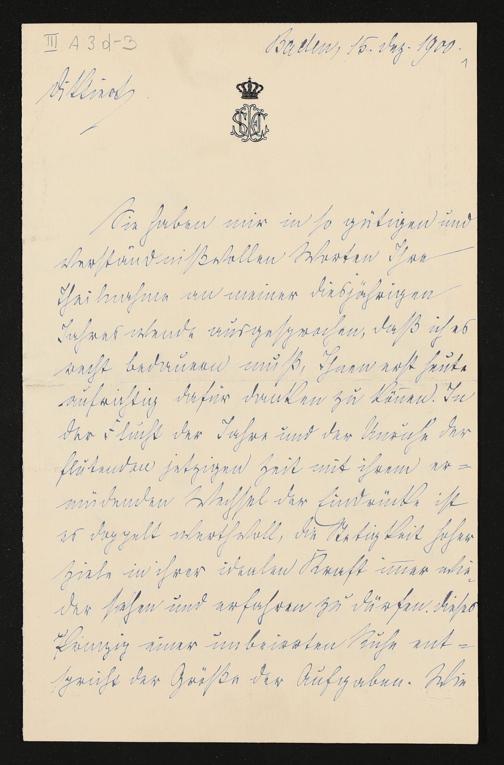 III A 3 d-3
Baden, 15. Dez. 1900.
Sie haben mir in so gütigen und
verständnißvollen Worten Ihre
Theilnahme an meiner diesjährigen
Jahreswende ausgesprochen, daß ich es
recht bedauern muß, Ihnen erst heute
aufrichtig dafür danken zu können. In
der Flucht der Jahre und der Unruhe der
flutenden jetzigen Zeit mit ihrem er=
müdenden Wechsel der Eindrücke ist
es doppelt werthvoll, die Stetigkeit hoher
Ziele in ihrer idealen Kraft immer wie=
der sehen und erfahren zu dürfen. Dieses
Prinzip einer unbeirrten Ruhe ent=
spricht der Größe der Aufgaben. Wie